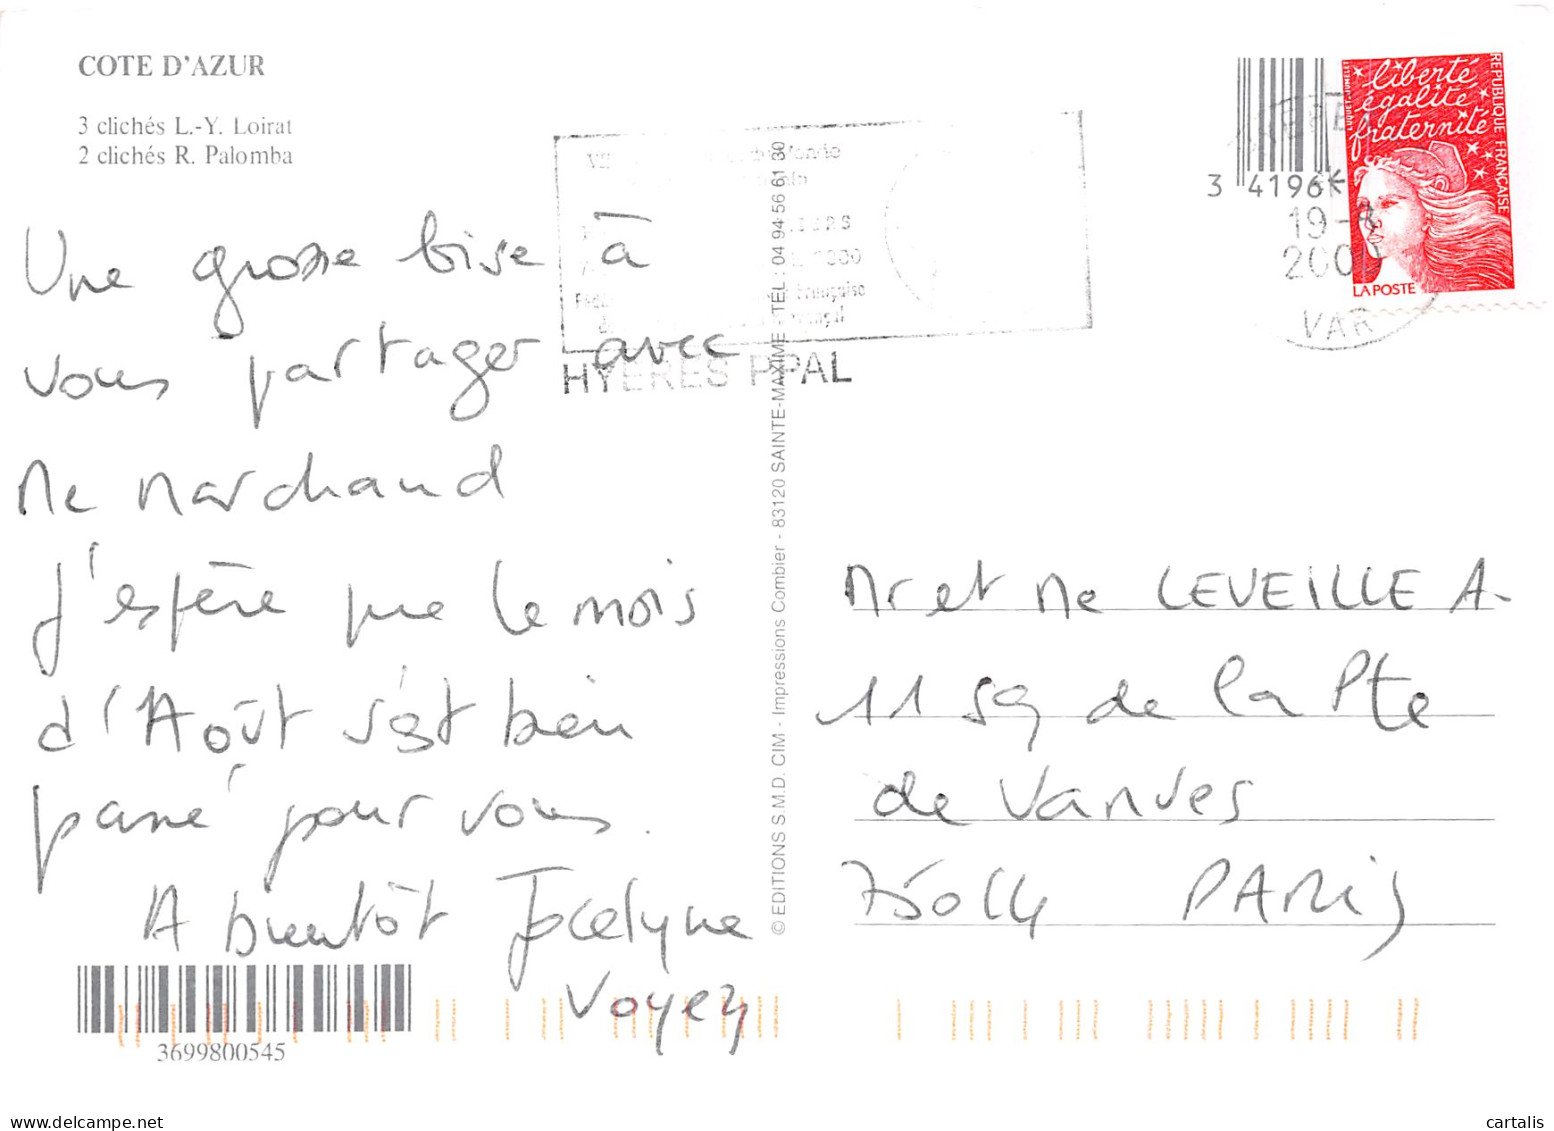 COTE D'AZUR
3 clichés L.-Y. Loirat
2 clichés R. Palomba
Une grosse bise à
vous partager avec
Me Marchand
J'espère que le mois
d'Août s'est bien
passé pour vous.
A bientôt Jocelyne
Voyez
3699800545
HYERES PPAL
© EDITIONS S.M.D. CIM - Impressions Combier - 83120 SAINTE-MAXIME - TEL : 04 94 56 61 30
3 4196
19-8
2000
VAR
liberté
égalité
fraternité
REPUBLIQUE FRANÇAISE
LA POSTE
Mr et Me LEVEILLE A.
11 sq de la Pte
de Vanves
75014 PARIS
cartalis
www.delcampe.net